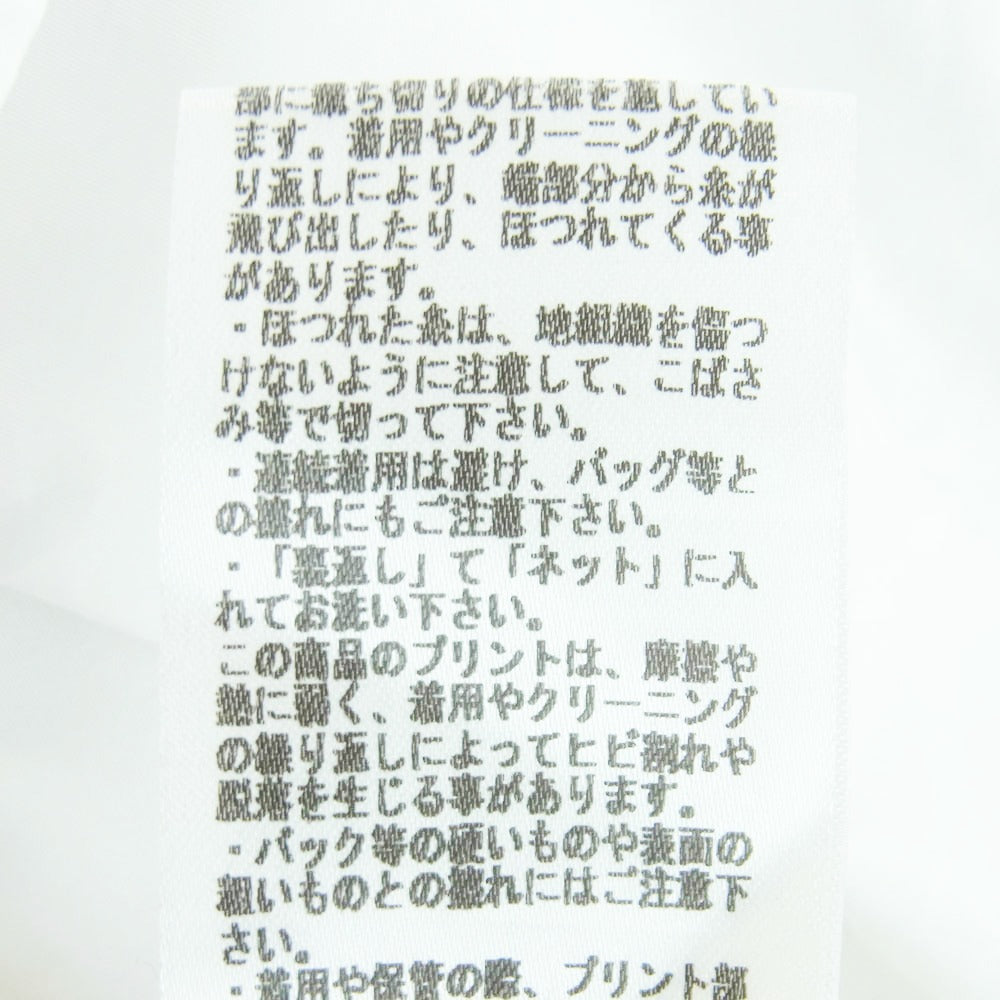 部に裁ち切りの仕様を施してい
ます。着用やクリーニングの繰
り返しにより、端部分から糸が
飛び出したり、ほつれてくる事
があります。
・ほつれた糸は、地組織を傷つ
けないように注意して、こばさ
み等で切って下さい。
・連続着用は避け、バッグ等と
の擦れにもご注意下さい。
・「裏返し」て「ネット」に入
れてお洗い下さい。
この商品のプリントは、摩擦や
熱に弱く、着用やクリーニング
の繰り返しによってヒビ割れや
脱落を生じる事があります。
・バック等の硬いものや表面の
粗いものとの擦れにはご注意下
さい。
・着用や保管の際、プリント部